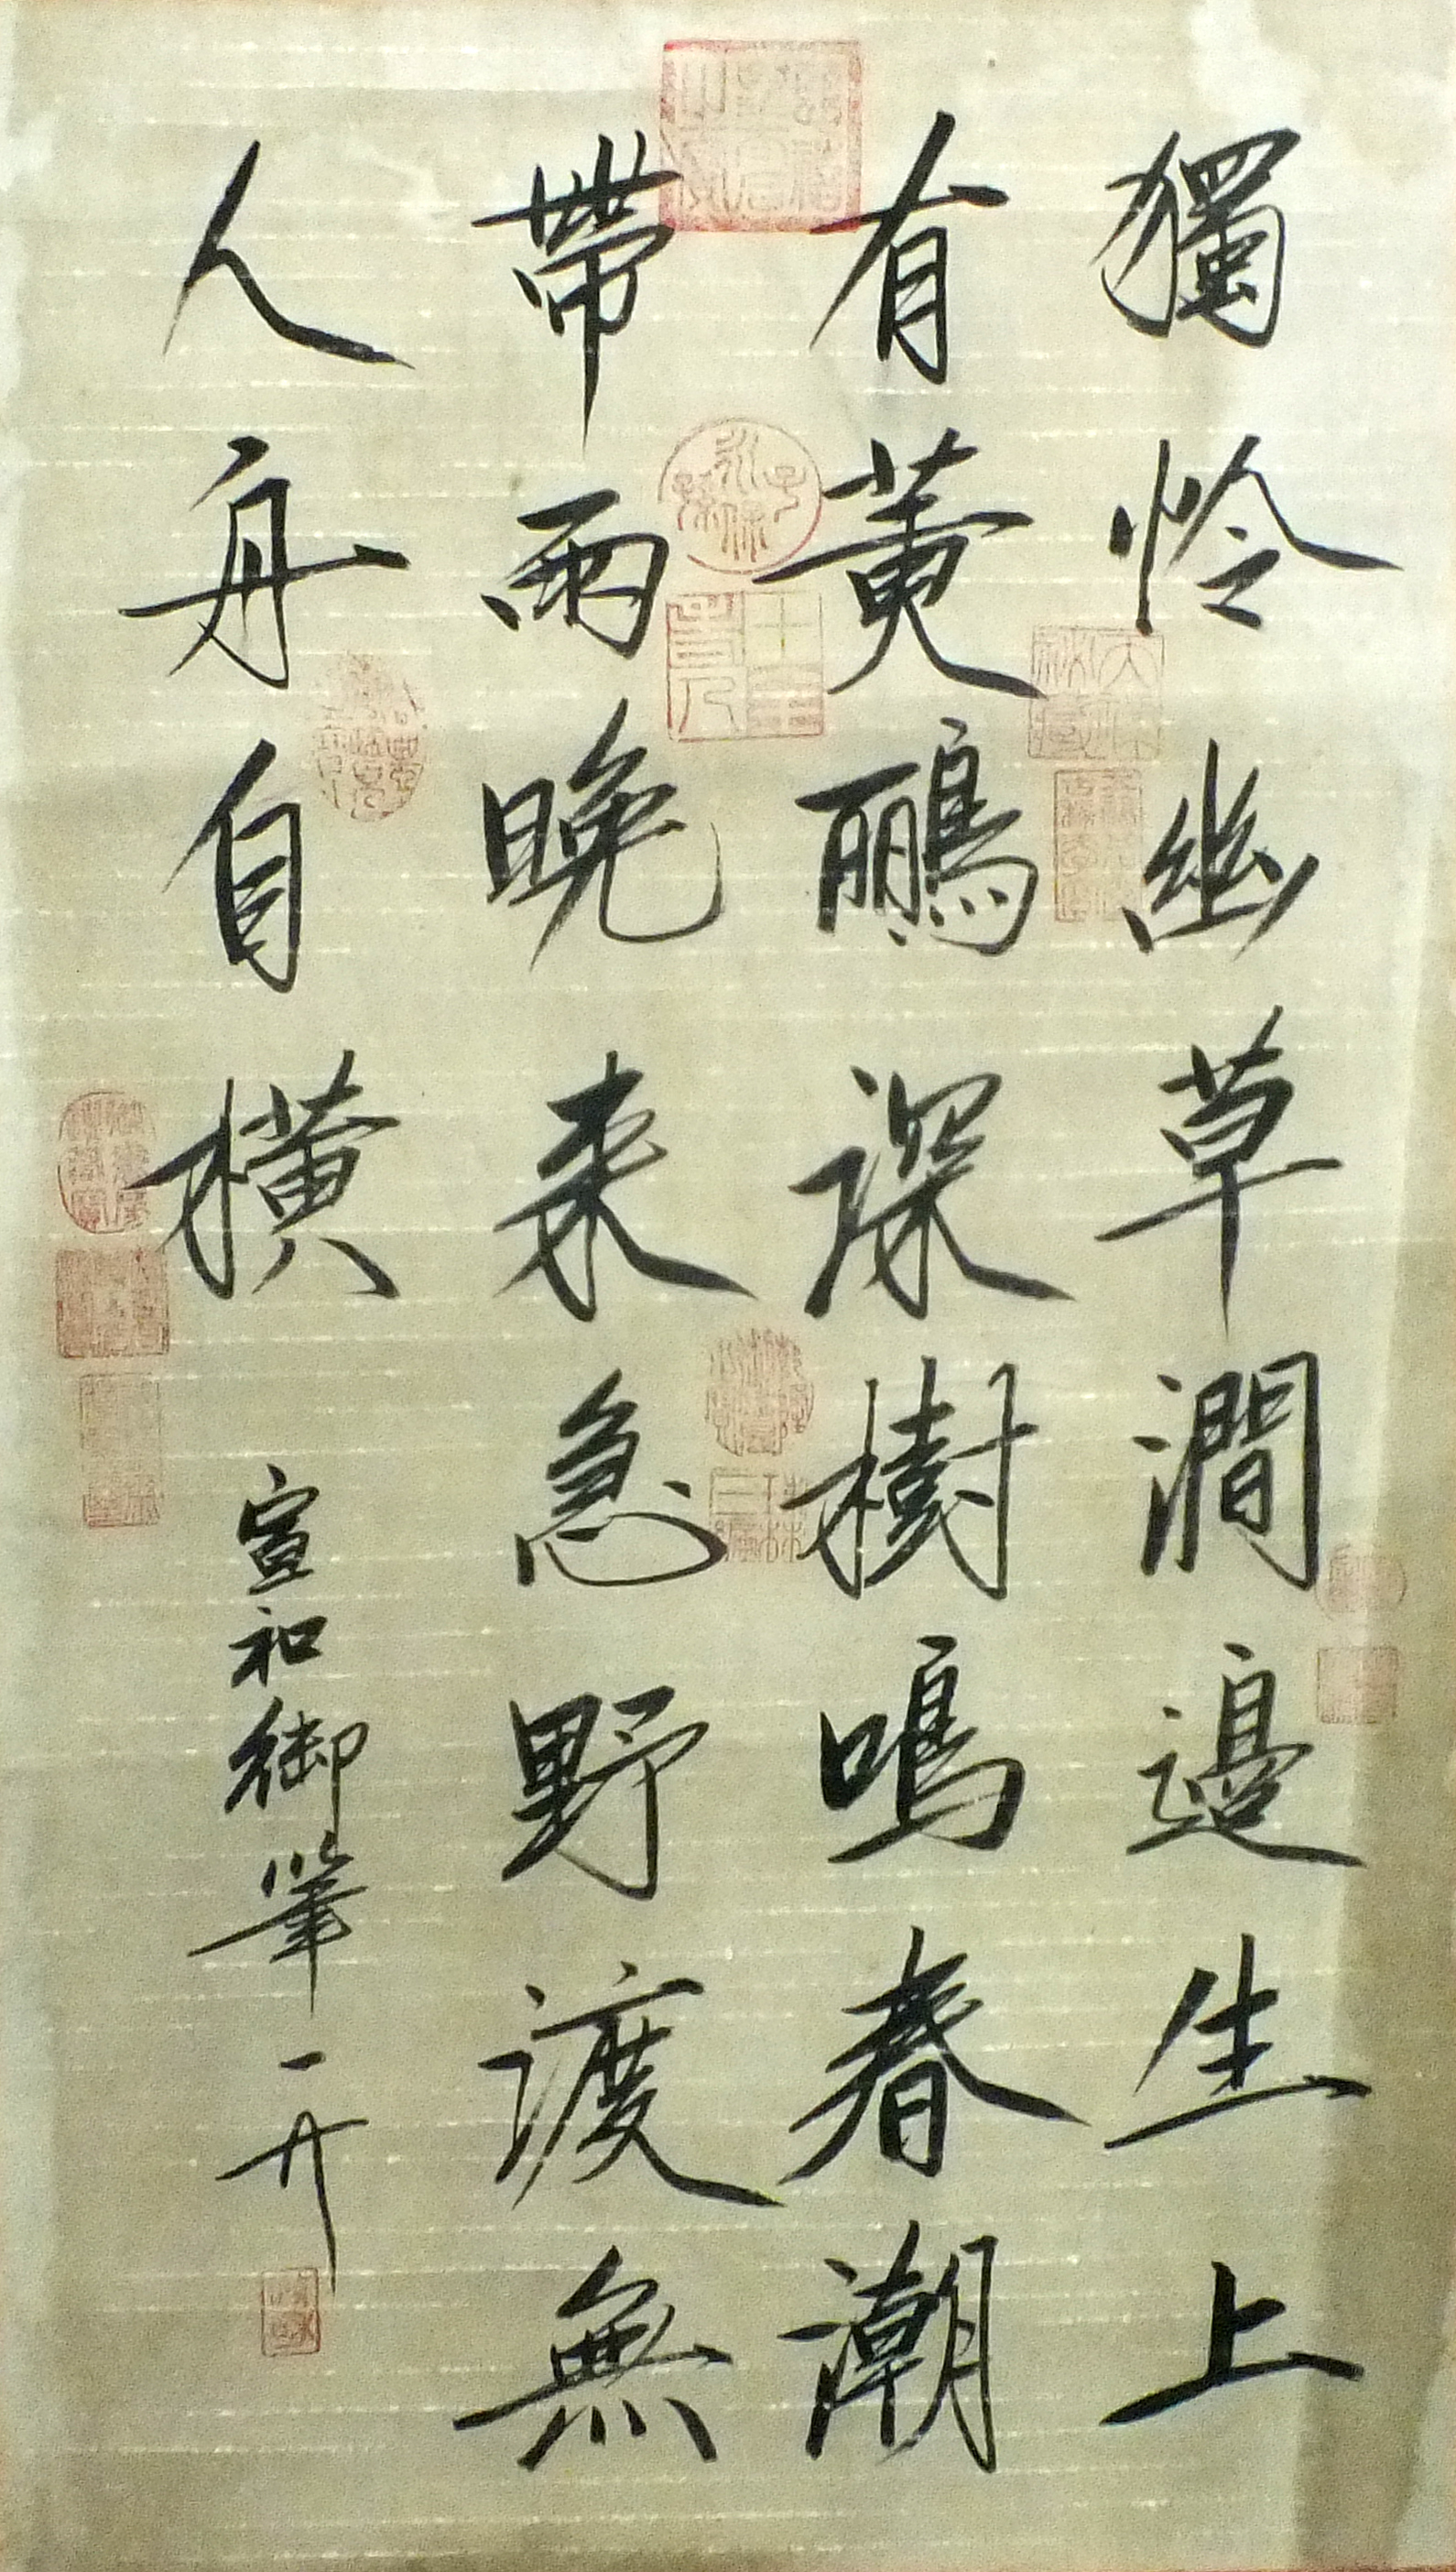 獨怜幽草澗邊生上
有黄鸝深樹鳴春潮
帶雨晚来急野渡無
人舟自横
宣和御筆